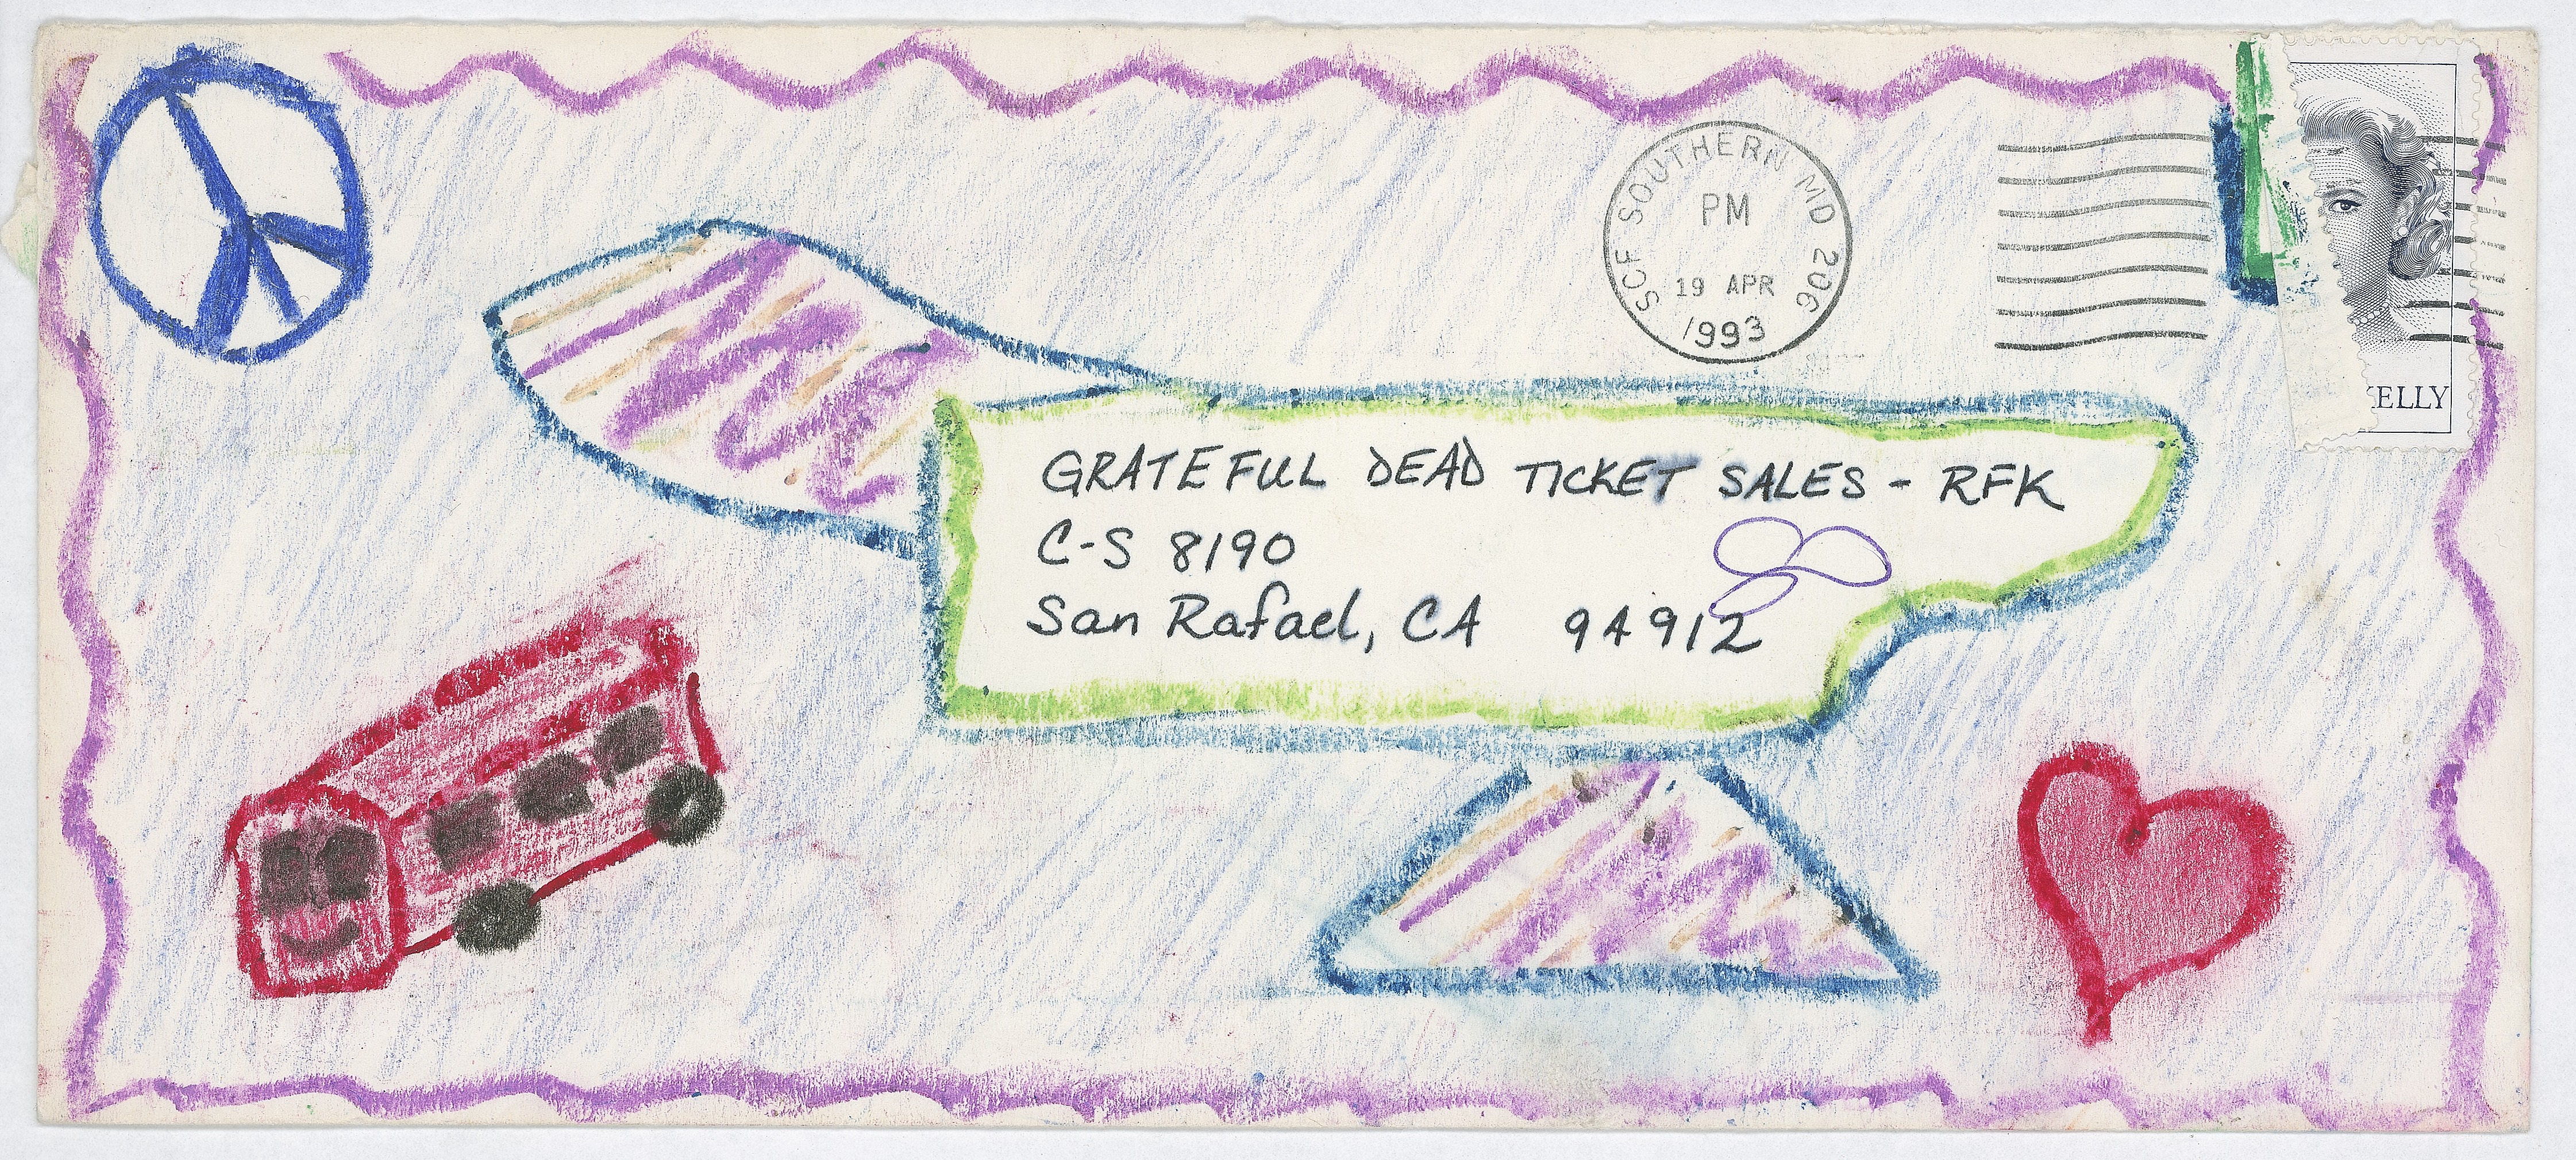 SCF SOUTHERN MD 206
PM
19 APR
1993
KELLY
GRATEFUL DEAD TICKET SALES - RFK
C-S 8190
San Rafael, CA 94912